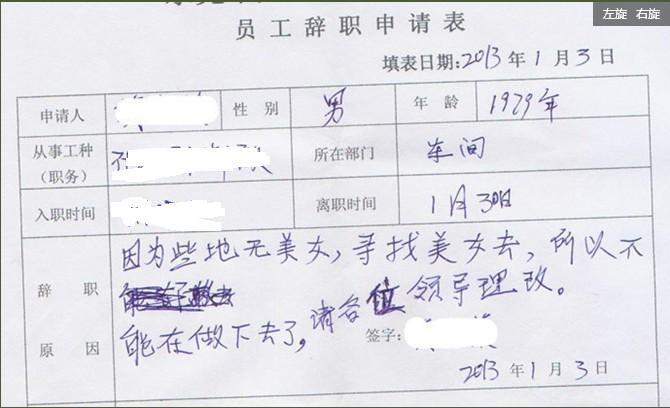 左旋 右旋
员工辞职申请表
填表日期:2013年1月3日
申请人 性别 男 年龄 1979年
从事工种(职务) 所在部门 车间
入职时间 离职时间 1月30日
辞职原因
因为些地无美女,寻找美女去,所以不
能在做下去了,请各位领导理改。
签字:
2013年1月3日